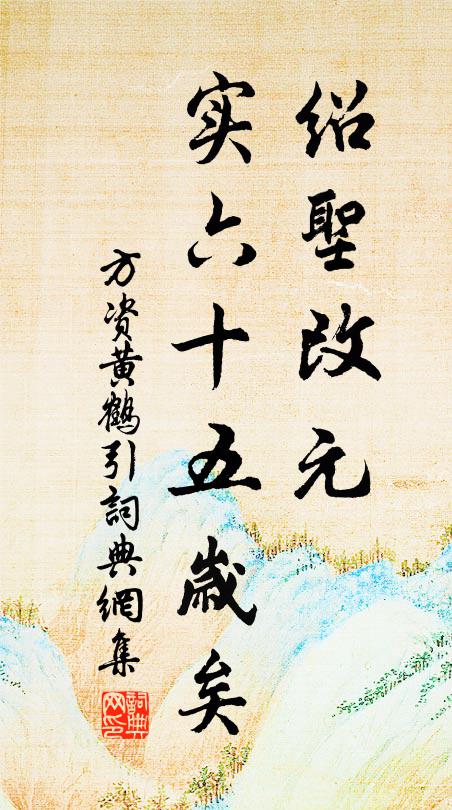 绍聖改元
实六十五歲矣
方资黄鶴引詞典網集
詞典网印